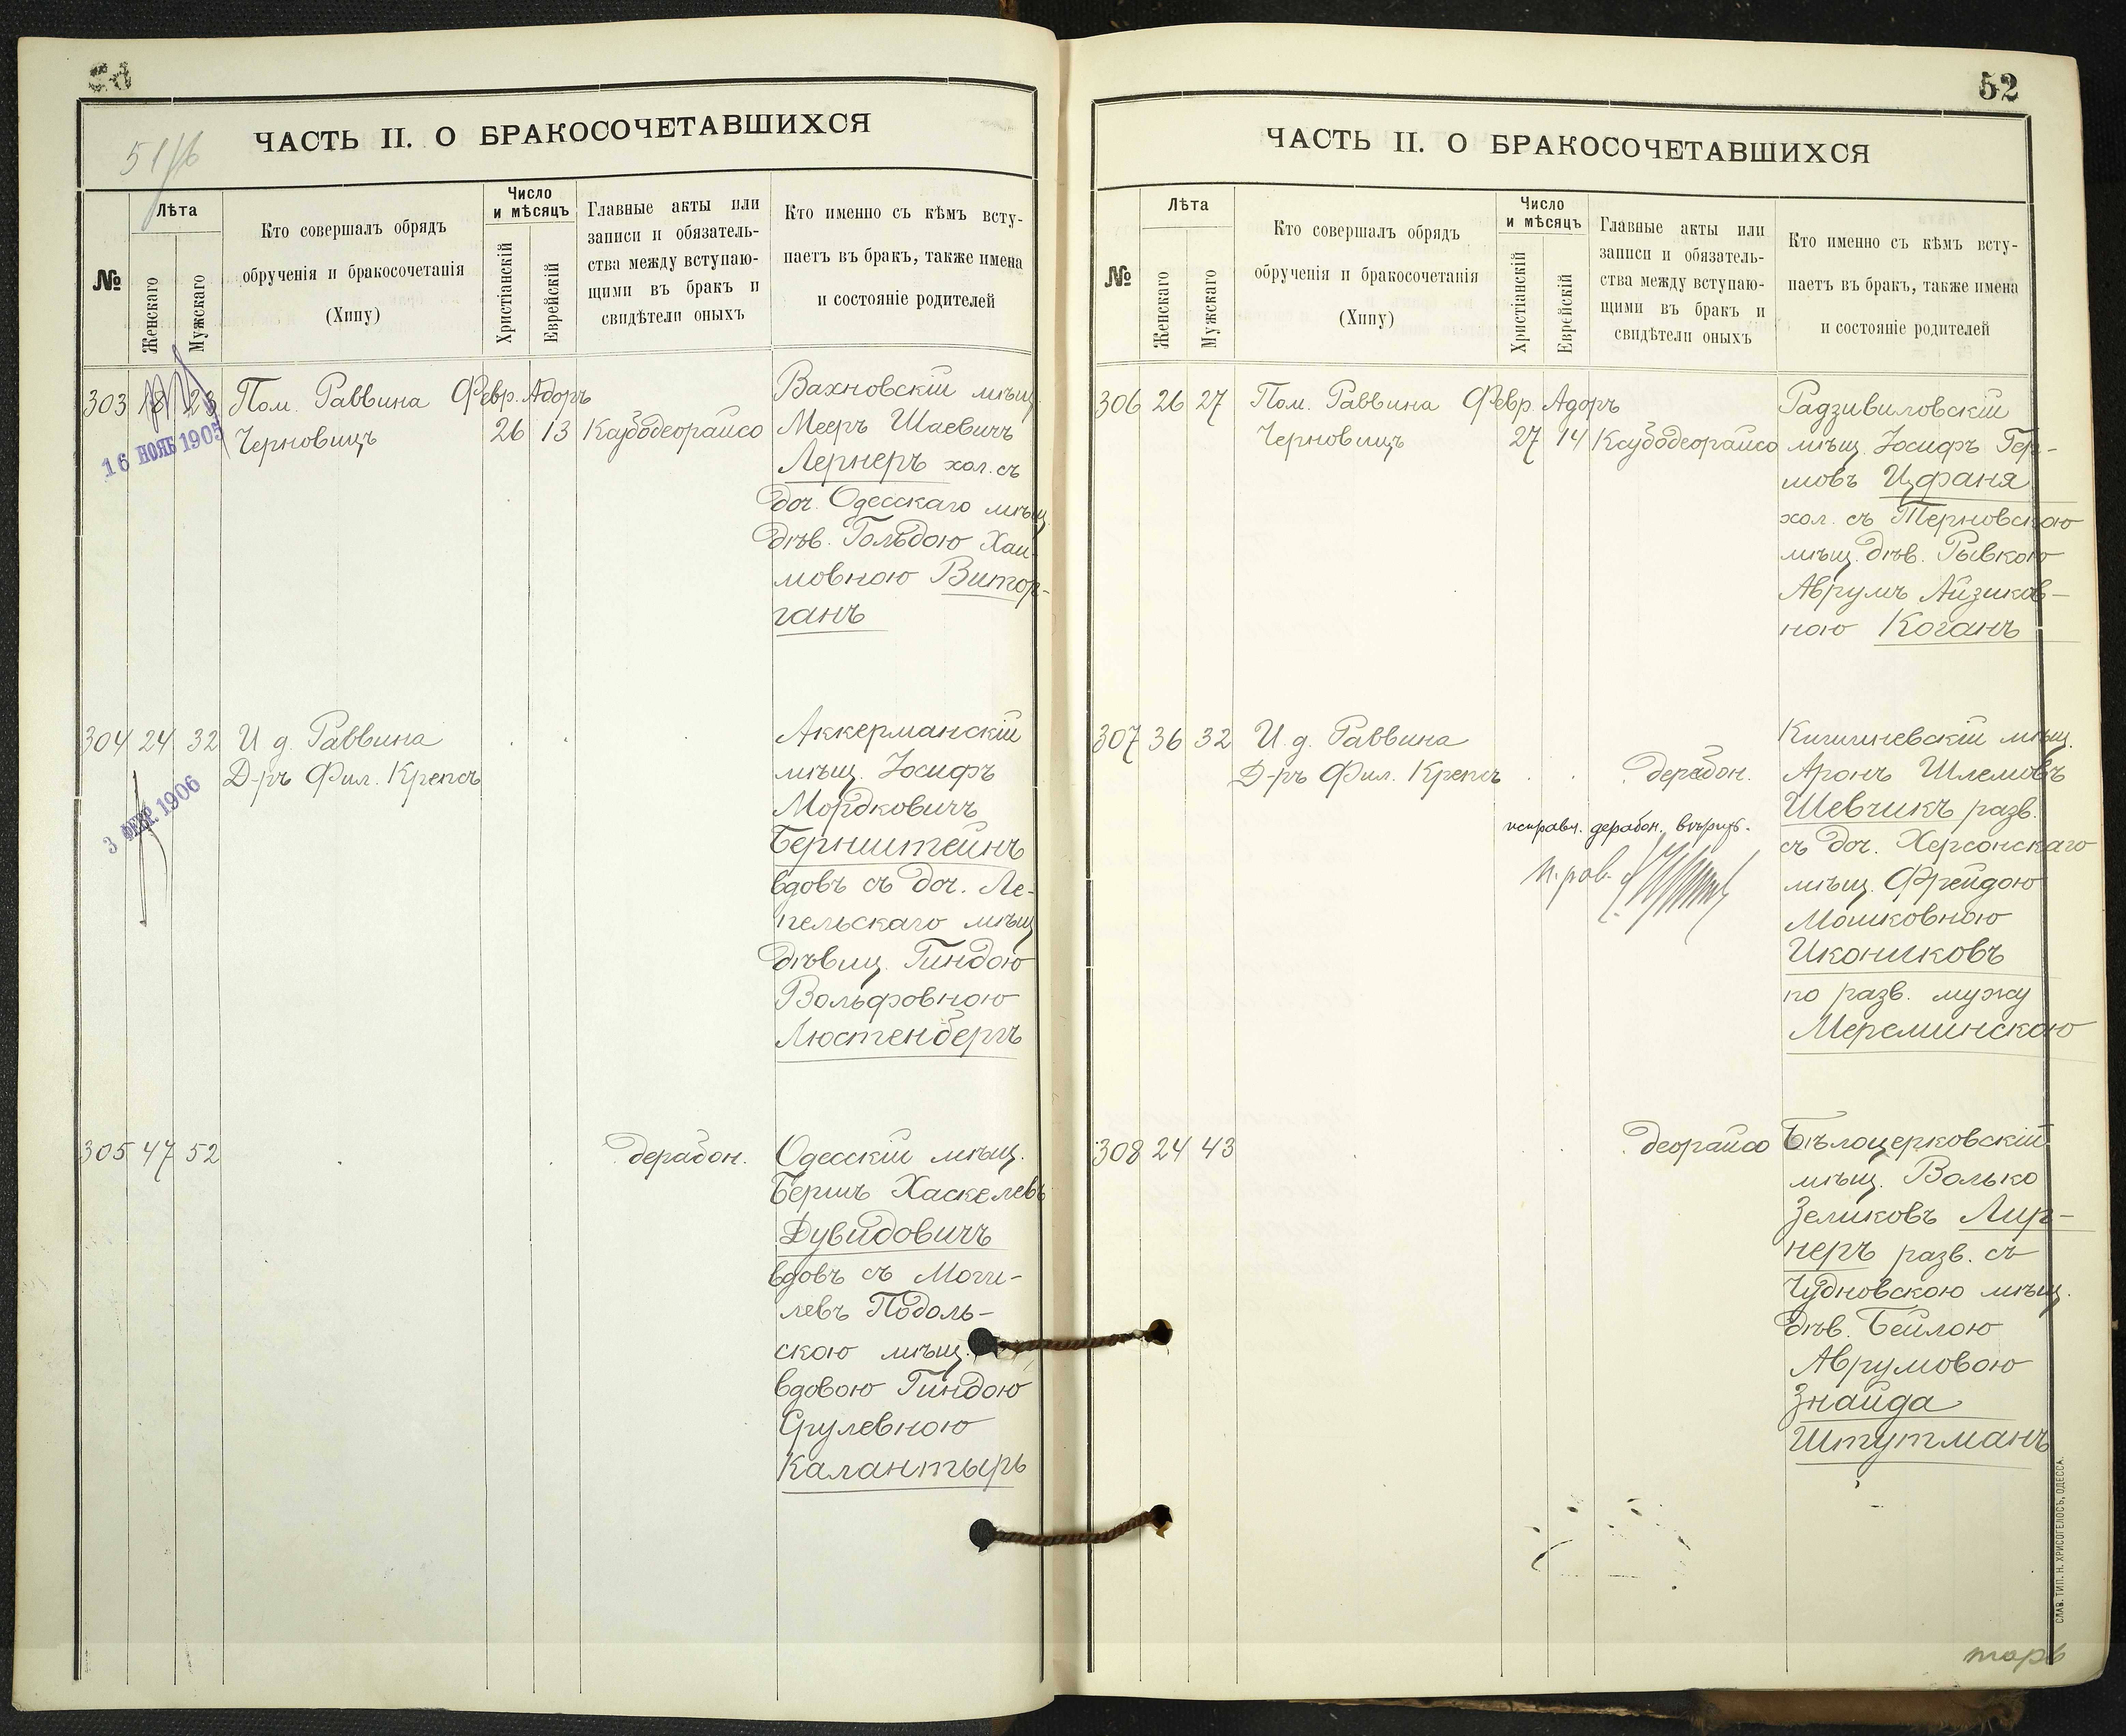 ЧАСТЬ II. О БРАКОСОЧЕТАВШИХСЯ
51/б
№
Лѣта
Женскаго
Мужскаго
Кто совершалъ обрядъ
обрученія и бракосочетанія
(Хипу)
Число
и мѣсяцъ
Христіанскій
Еврейскій
Главные акты или
записи и обязатель-
ства между вступаю-
щими въ бракъ и
свидѣтели оныхъ
Кто именно съ кѣмъ всту-
паетъ въ бракъ, также имена
и состояніе родителей
303 18 23 Пом. Раввина Февр. Адоръ
Черновицъ 26 13 Каубодеорайсо
16 НОЯБ 1905
Вахновскій мѣщ.
Мееръ Шаевичъ
Лернеръ хол. съ
доч. Одесскаго мѣщ.
дѣв. Гольдою Хаи-
мовною Витор-
ганъ
304 24 32 И д. Раввина
Д-ръ Фил. Крепсъ
3 ФЕВР. 1906
Аккерманскій
мѣщ. Іосифъ
Мордковичъ
Бернштейнъ
вдовъ съ доч. Ле-
пельскаго мѣщ.
дѣвиц. Гиндою
Вольфовною
Люстенбергъ
305 47 52 дерабон.
Одесскій мѣщ.
Бершъ Хаскелевъ
Дувидовичъ
вдовъ съ Моги-
левъ Подоль-
скою мѣщ.
вдовою Гиндою
Срулевною
Калантырь
52
ЧАСТЬ II. О БРАКОСОЧЕТАВШИХСЯ
№
Лѣта
Женскаго
Мужскаго
Кто совершалъ обрядъ
обрученія и бракосочетанія
(Хипу)
Число
и мѣсяцъ
Христіанскій
Еврейскій
Главные акты или
записи и обязатель-
ства между вступаю-
щими въ бракъ и
свидѣтели оныхъ
Кто именно съ кѣмъ всту-
паетъ въ бракъ, также имена
и состояніе родителей
306 26 27 Пом. Раввина Февр. Адоръ
Черновицъ 27 14 Каубодеорайсо
Радзивиловскій
мѣщ. Іосифъ Гер-
мовъ Цфаня
хол. съ Терновскою
мѣщ. дѣв. Рывкою
Аврумъ Айзиков-
ною Коганъ
307 36 32 И. д. Раввина
Д-ръ Фил. Крепсъ дерабон.
исправл. дерабон. вѣрить.
п. рав.
Кишиневскій мѣщ.
Аронъ Шлемовъ
Шевчикъ разв.
съ доч. Херсонскаго
мѣщ. Фрейдою
Мошковною
Икониковъ
по разв. мужу
Мереминскою
308 24 43 деорайсо
Бѣлоцерковскій
мѣщ. Волько
Зеликовъ Лир-
неръ разв. съ
Чудновскою мѣщ.
дѣв. Бейлою
Аврумовою
Знайда
Штутманъ
СЛАВ. ТИП. Н. ХРИСОГЕЛОСЪ, ОДЕССА.